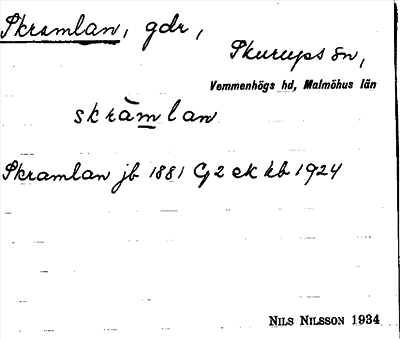 Skramlan, gdr,
Skurups sn,
Vemmenhögs hd, Malmöhus län
skràmlan
Skramlan jb 1881 G2 ek kb 1924
NILS NILSSON 1934